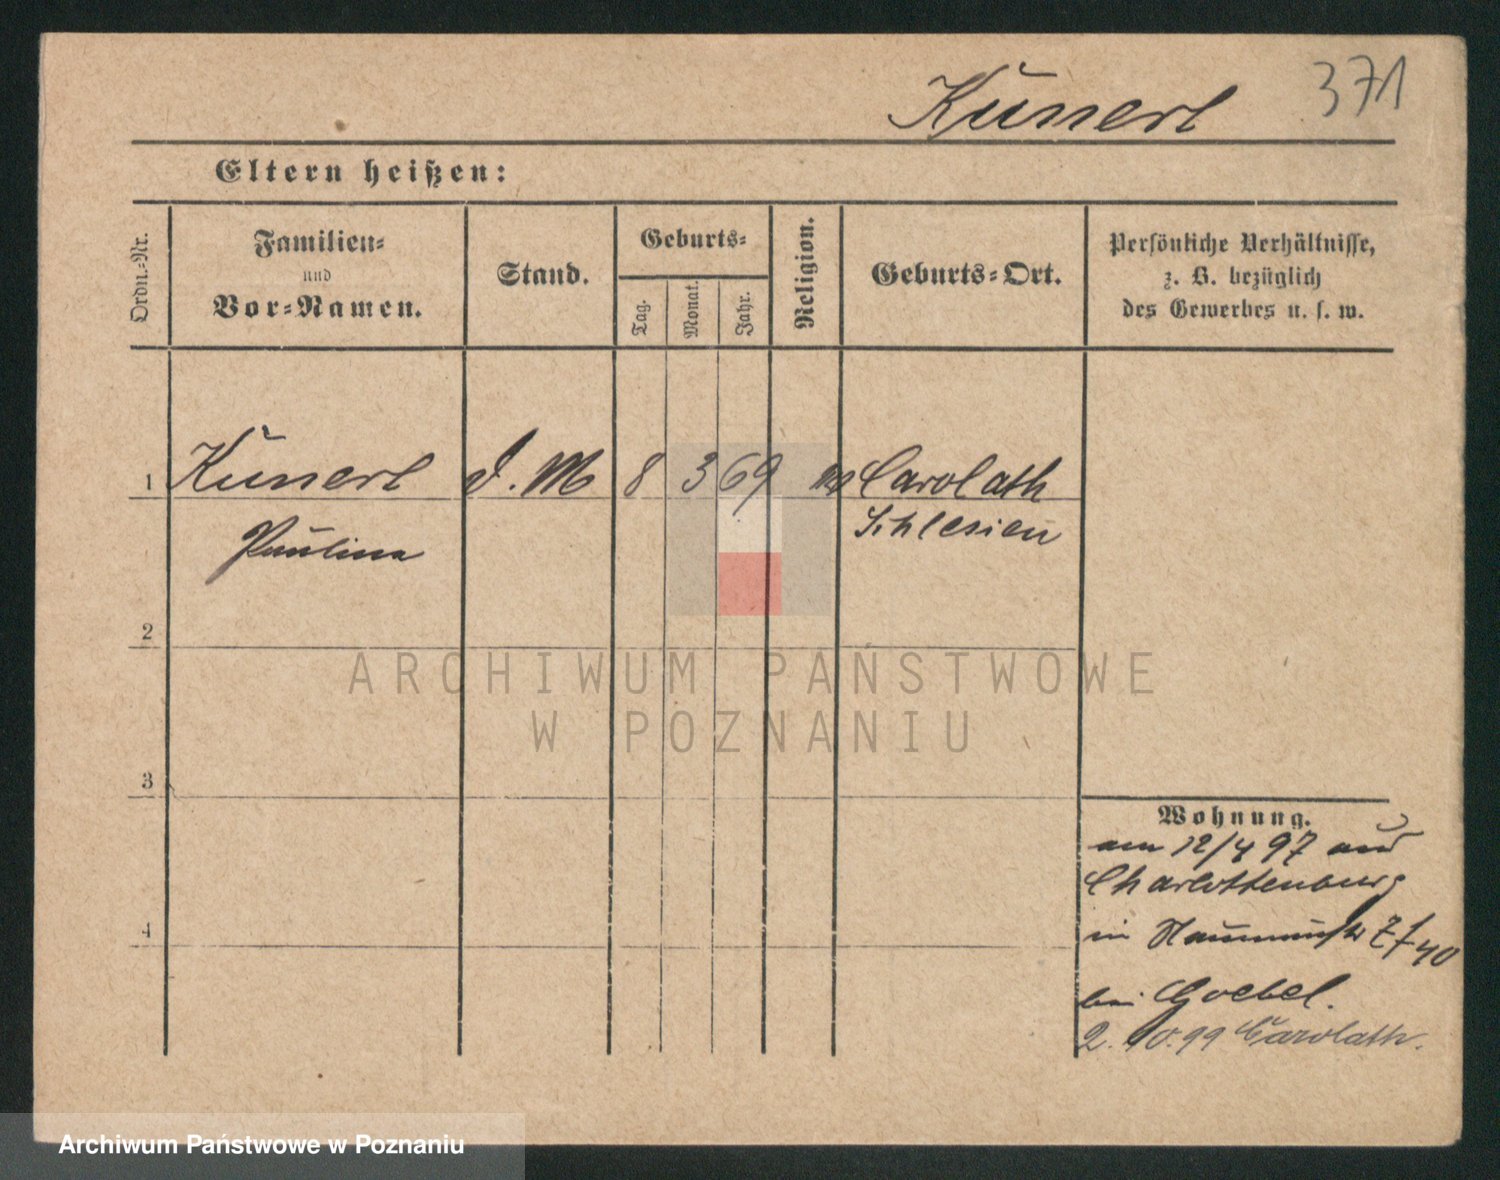 Kunert 371
Eltern heißen:
Ordn.-Nr.
Familien-
und
Vor-Namen.
Stand.
Geburts-
Tag.
Monat.
Jahr.
Religion.
Geburts-Ort.
Persönliche Verhältnisse,
z. B. bezüglich
des Gewerbes u. s. w.
1 Kunert D. M 8 3 69 Carolath
Paulina Schlesien
2
3
4
Wohnung.
am 12/4 97 aus
Charlottenburg
in 40
bei Goebel.
2. 10. 99 Carolath.
ARCHIWUM PAŃSTWOWE
W POZNANIU
Archiwum Państwowe w Poznaniu